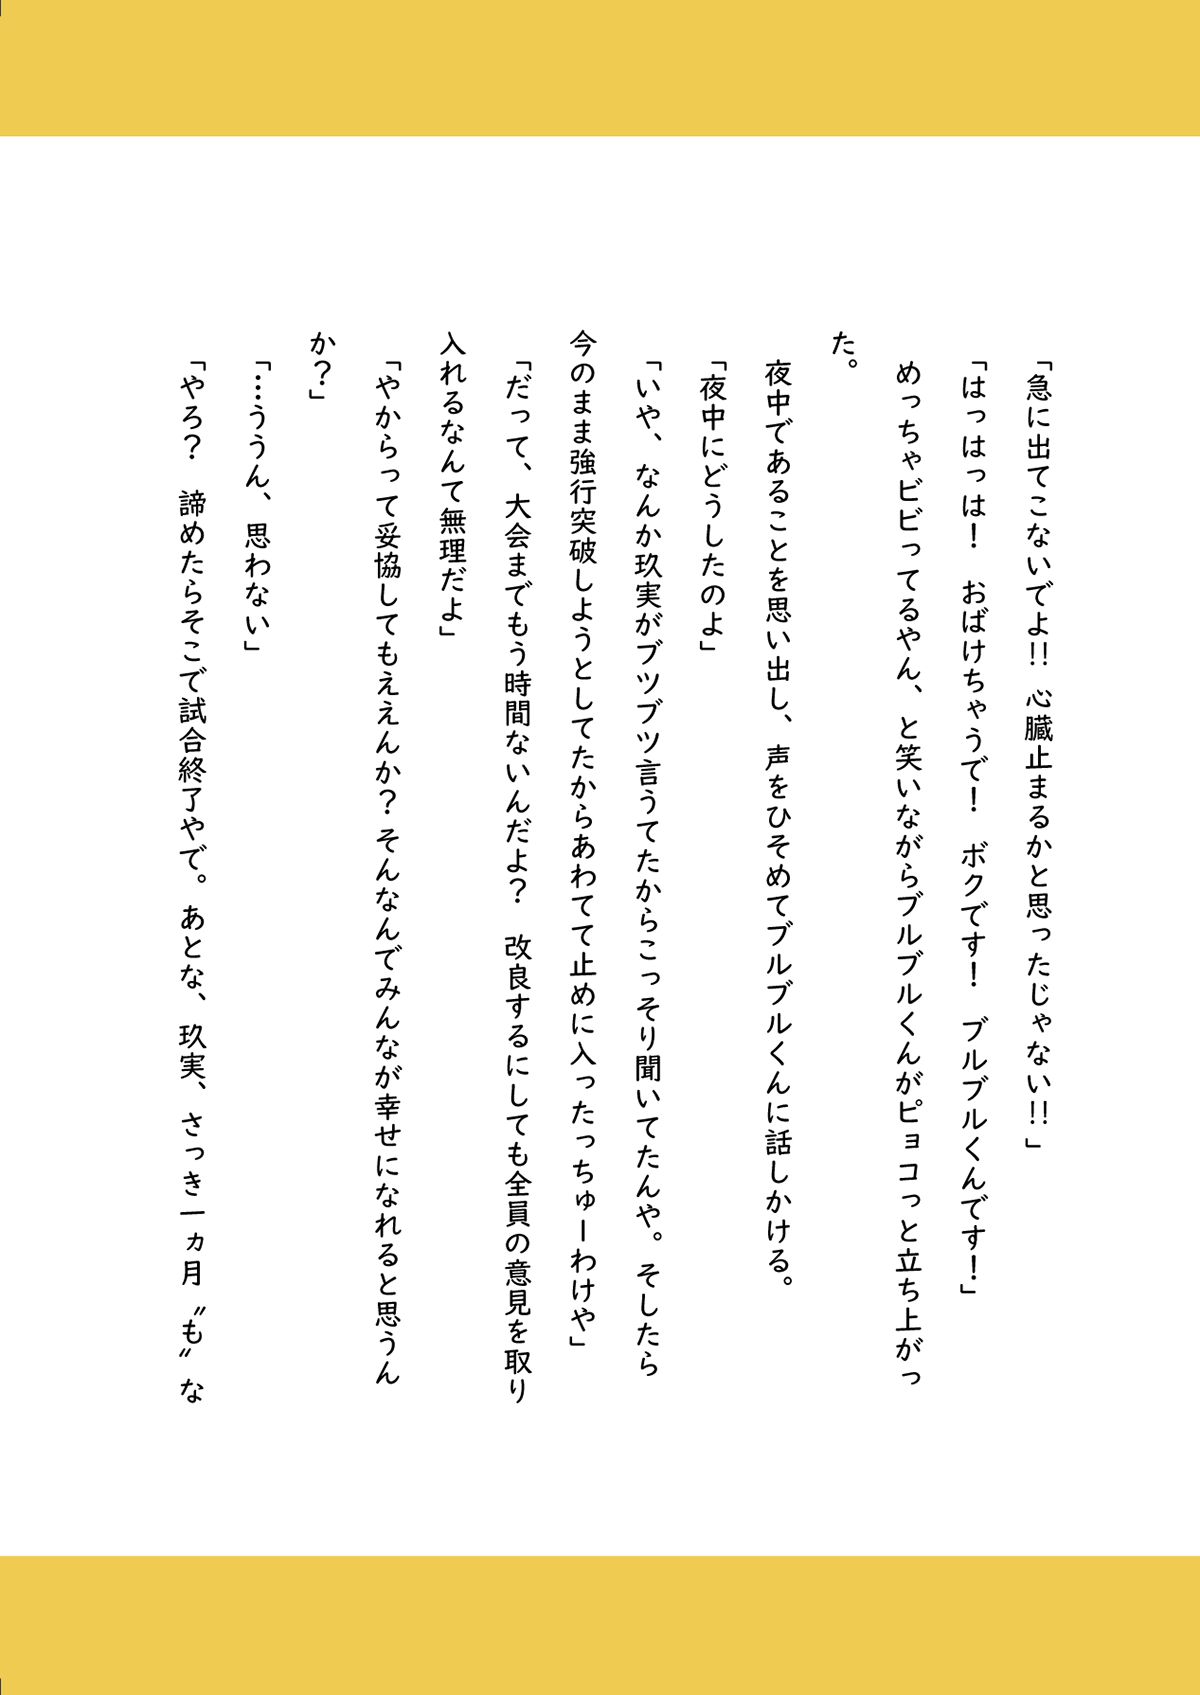 「急に出てこないでよ!! 心臓止まるかと思ったじゃない!!」
「はっはっは!　おばけちゃうで!　ボクです!　ブルブルくんです!」
めっちゃビビってるやん、と笑いながらブルブルくんがピョコっと立ち上がっ
た。
夜中であることを思い出し、声をひそめてブルブルくんに話しかける。
「夜中にどうしたのよ」
「いや、なんか玖実がブツブツ言うてたからこっそり聞いてたんや。そしたら
今のまま強行突破しようとしてたからあわてて止めに入ったっちゅーわけや」
「だって、大会までもう時間ないんだよ?　改良するにしても全員の意見を取り
入れるなんて無理だよ」
「やからって妥協してもええんか? そんなんでみんなが幸せになれると思うん
か?」
「…ううん、思わない」
「やろ?　諦めたらそこで試合終了やで。あとな、玖実、さっき一ヵ月〝も〟な